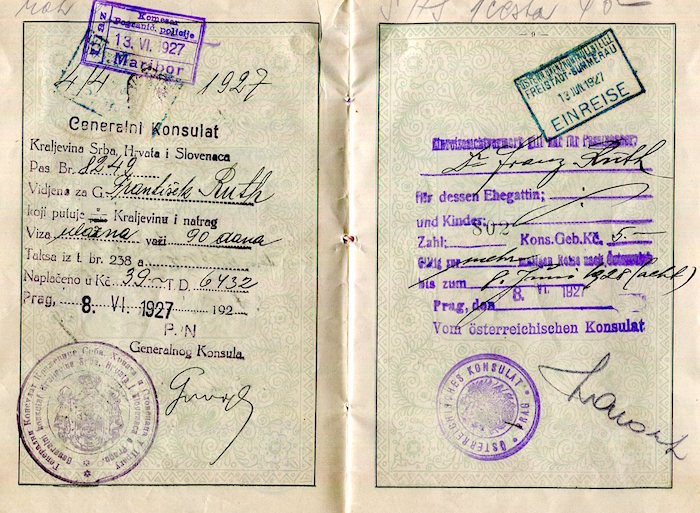 Komesar
Pogranič. policije
13. VI. 1927
Maribor
4/4 1927
Generalni Konsulat
Kraljevina Srba, Hrvata i Slovenaca
Pas. Br. 8249
Vidjena za G. František Ruth
koji putuje Kraljevinu i natrag
Viza ulazna važi 90 dana
Taksa iz t. br. 238 a
Naplaćeno u Kč 39 — T. D. 6432
Prag, 8. VI. 1927 192
P./N
Generalnog Konsula.
- 9 -
FREISTADT-SUMMERAU
13 JUN 1927
EINREISE
Dr. Franz Ruth
für dessen Ehegattin;
und Kinder;
Zahl: 802 Kons.Geb.Kč. 5.—
Gültig zur mehrmaligen Reise nach Österreich
bis zum 8. Juni 1928 (acht)
Prag, den 8. VI. 1927
Vom österreichischen Konsulat
ÖSTERREICHISCHES KONSULAT * PRAG